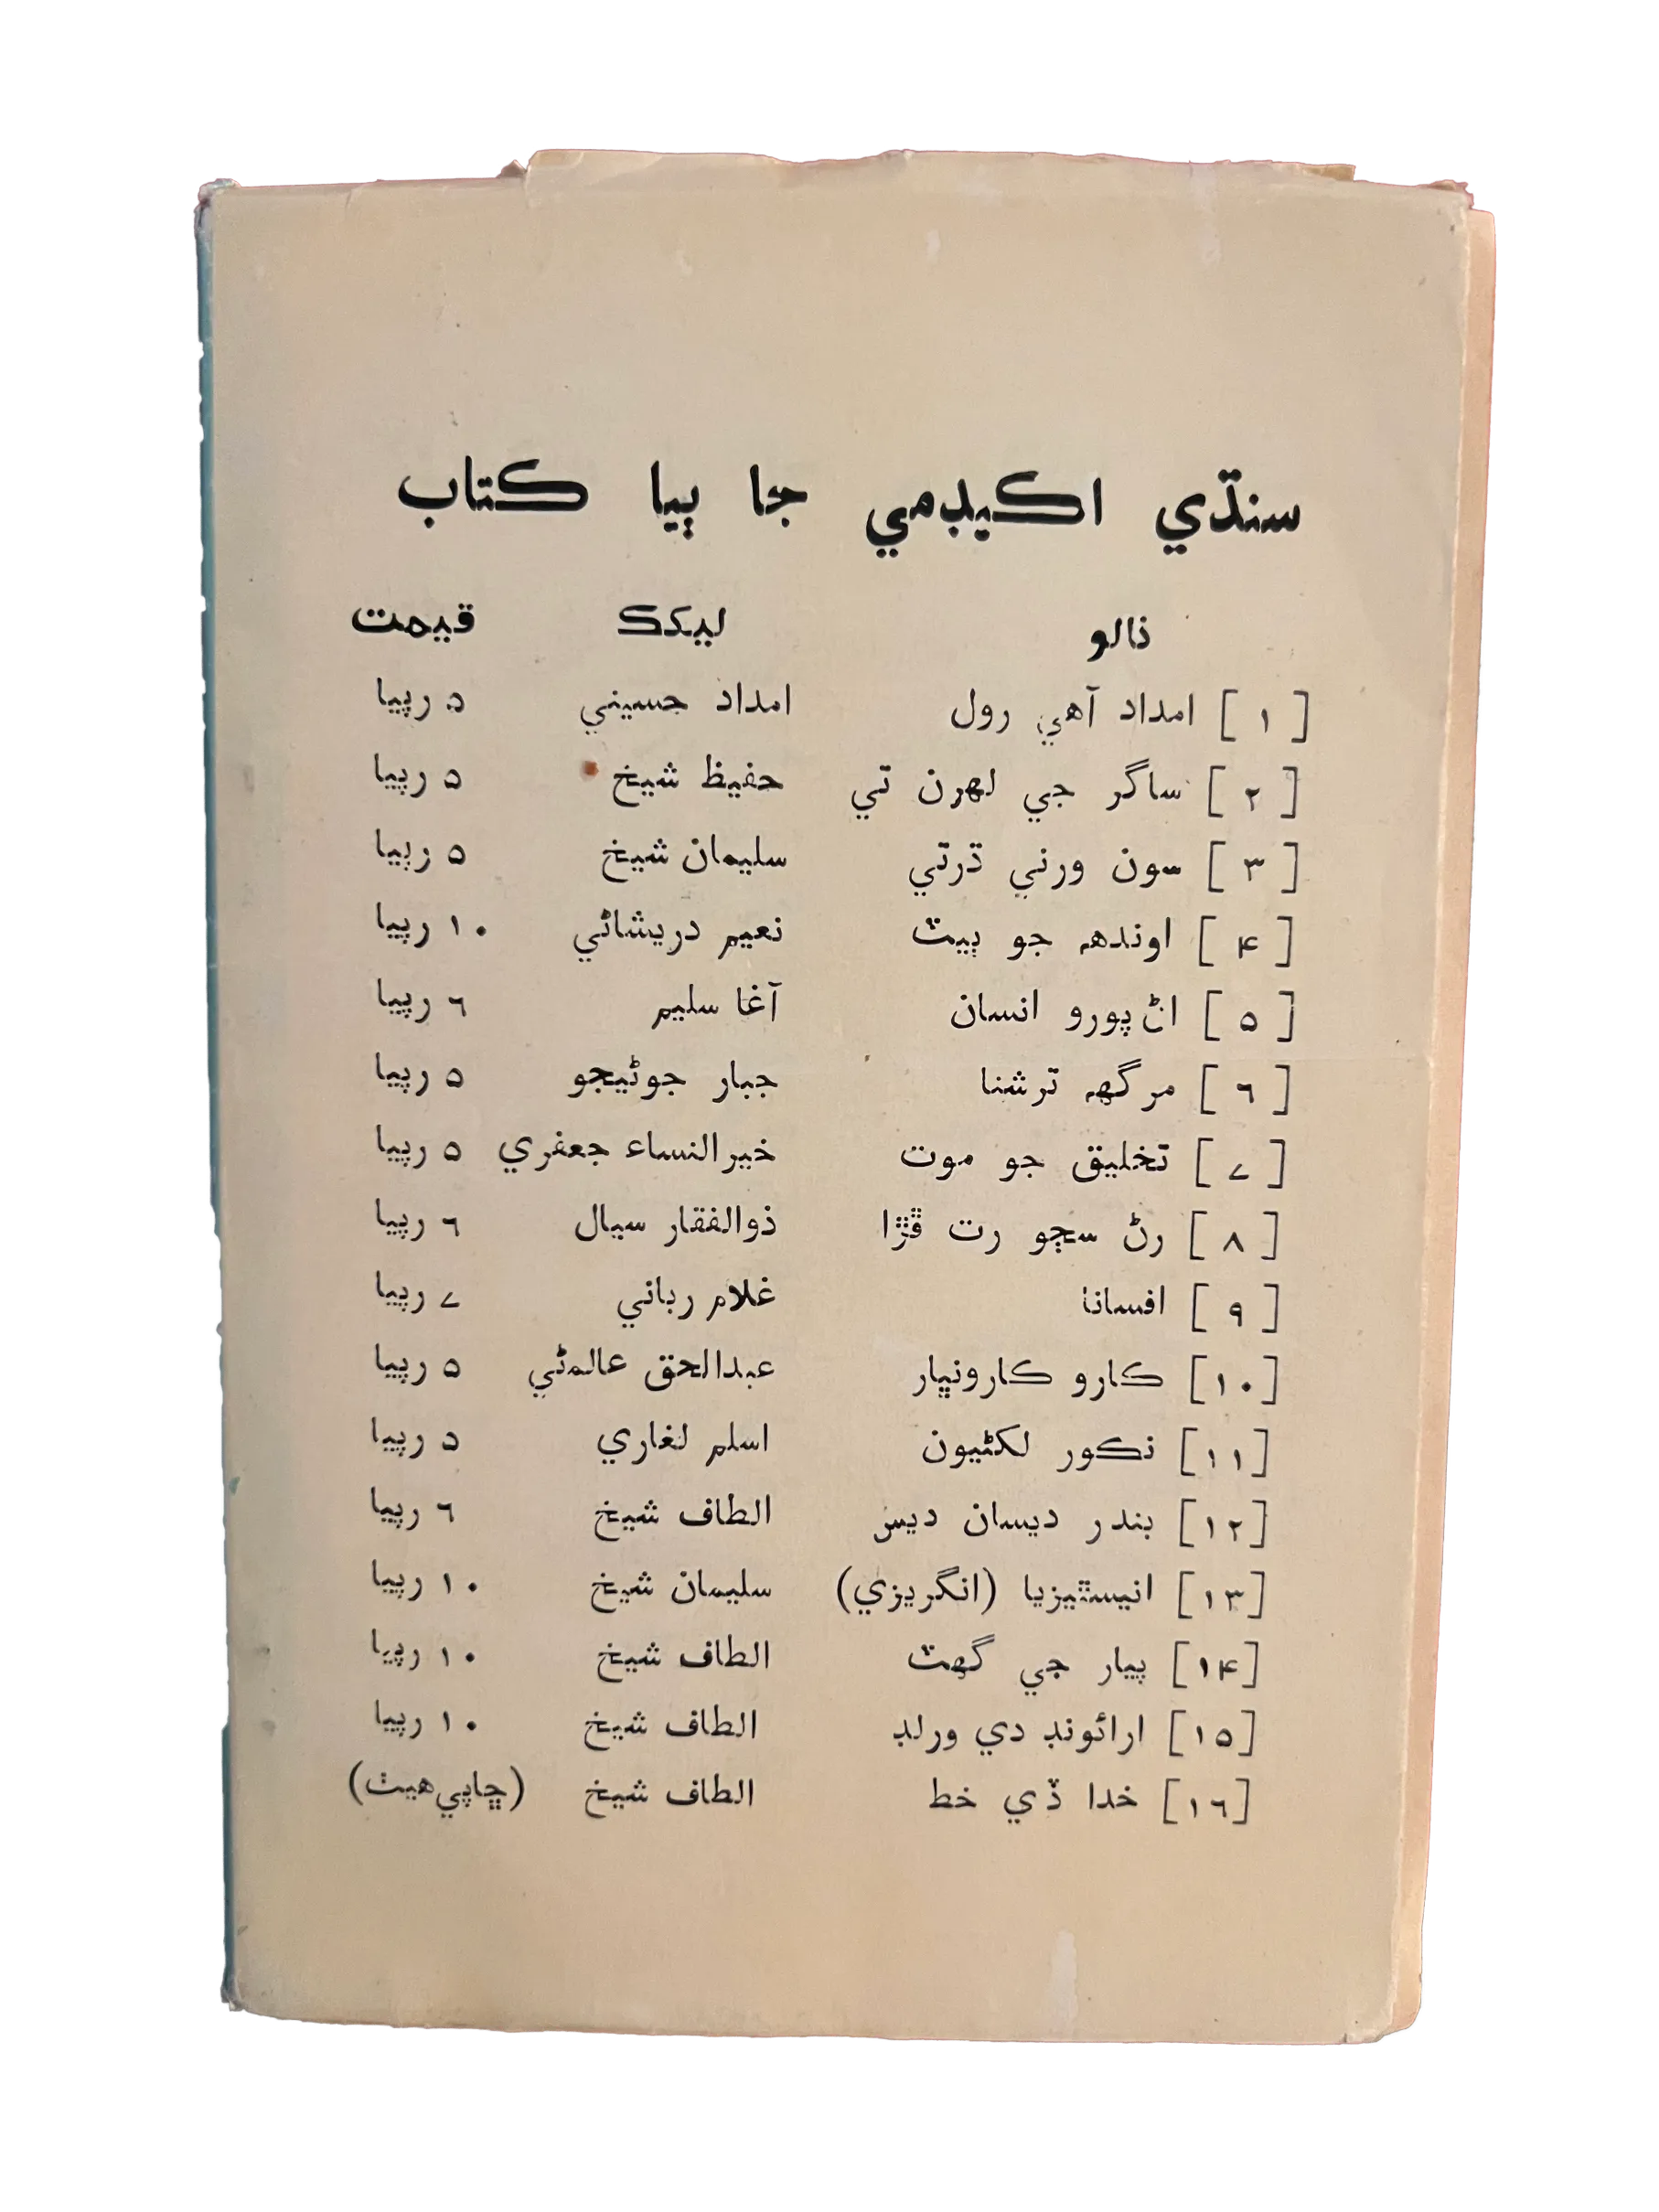 سنڌي اڪيڊمي جا ٻيا ڪتاب
نالو ليکڪ قيمت
[ ۱ ] امداد آهي رول امداد حسيني ۵ رپيا
[ ۲ ] ساگر جي لهرن تي حفيظ شيخ ۵ رپيا
[ ۳ ] سون ورني ڌرتي سليمان شيخ ۵ رپيا
[ ۴ ] اونده جو ٻيٽ نعيم دريشاڻي ۱۰ رپيا
[ ۵ ] اڻ پورو انسان آغا سليم ٦ رپيا
[ ٦ ] مرگهه ترشنا جبار جوڻيجو ۵ رپيا
[ ۷ ] تخليق جو موت خيرالنساء جعفري ۵ رپيا
[ ۸ ] رڻ سڄو رت ڦڙا ذوالفقار سيال ٦ رپيا
[ ۹ ] افسانا غلام رباني ۷ رپيا
[۱۰] ڪارو ڪارونڀار عبدالحق عالماڻي ۵ رپيا
[۱۱] نڪور لکڻيون اسلم لغاري ۵ رپيا
[۱۲] بندر ديسان ديس الطاف شيخ ٦ رپيا
[۱۳] انيسٿيزيا (انگريزي) سليمان شيخ ۱۰ رپيا
[۱۴] پيار جي گهٽ الطاف شيخ ۱۰ رپيا
[۱۵] ارائونڊ دي ورلڊ الطاف شيخ ۱۰ رپيا
[۱٦] خدا ڏي خط الطاف شيخ (ڇاپي هيٺ)